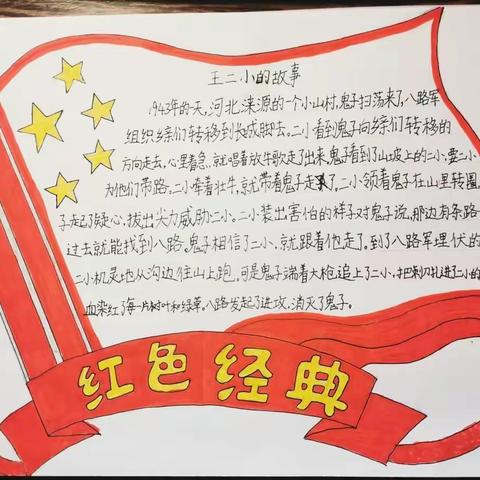 王二小的故事
1942年的一天,河北涞源的一个小山村,鬼子扫荡来了,八路军
组织乡亲们转移到长成脚去。二小看到鬼子向乡亲们转移的
方向走去,心里着急,就唱着放牛歌走了出来,鬼子看到了山坡上的二小,要二小
为他们带路。二小牵着壮牛,就带着鬼子走了,二小领着鬼子在山里转圈,
子起了疑心,拔出尖刀威胁二小。二小装出害怕的样子对鬼子说,那边有条路
过去就能找到八路。鬼子相信了二小,就跟着他走了,到了八路军埋伏的
二小机灵地从沟边往山上跑,可是鬼子端着大枪追上了二小,把刺刀扎进了二小的
血染红了每一片树叶和绿草。八路发起了进攻,消灭了鬼子。
红色经典